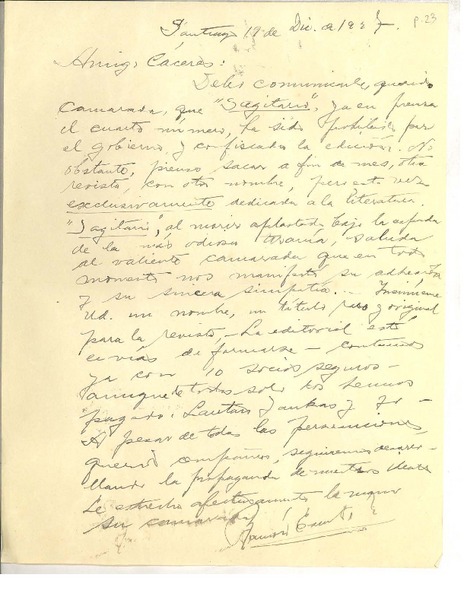 Santiago 17 de Dic. de 1927. p. 23
Amigo Cáceres:
Debo comunicarle, querido
camarada, que "Sagitario", ya en prensa
el cuarto número, ha sido prohibido por
el gobierno, y confiscada la edición. No
obstante, pienso sacar a fin de mes, otra
revista, con otro nombre, pero esta vez
exclusivamente dedicada a la literatura.
"Sagitario", al morir aplastado bajo la espada
de la más odiosa tiranía, saluda
al valiente camarada que en todo
momento nos manifestó su adhesión
y su sincera simpatía. – Insinúeme
Ud. un nombre, un título raro y original
para la revista, – La editorial está
en vías de formarse – contamos
ya con 10 socios seguros –
aunque de todos solo dos hemos
pagado: Lautaro Yankas y yo –
A pesar de todas las persecuciones
querido compañero, seguiremos desarro-
llando la propaganda de nuestros ideales
Le estrecha afectuosamente la mano
su camarada